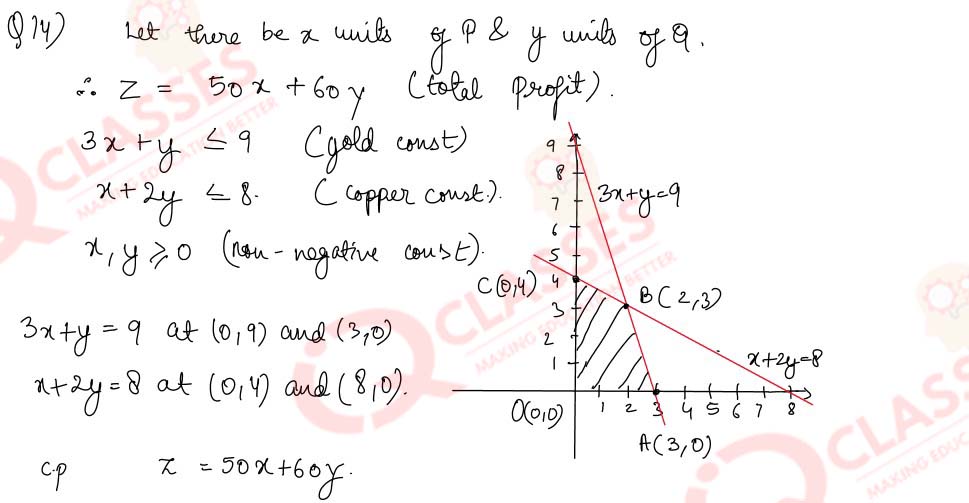 Q14) Let there be x units of P & y units of Q.
∴ Z = 50x + 60y (total profit).
3x + y ≤ 9 (gold const)
x + 2y ≤ 8. (copper const.).
x, y ≥ 0 (non-negative const).
3x + y = 9 at (0,9) and (3,0)
x + 2y = 8 at (0,4) and (8,0).
c.p Z = 50x + 60y.
9
8
7
6
5
4
3
2
1
3x+y=9
C(0,4)
B(2,3)
x+2y=8
O(0,0)
1 2 3 4 5 6 7 8
A(3,0)
CLASSES
MAKING EDUCATION BETTER
CLASSES
MAKING EDUCATION BETTER
CLASS
MAKING EDUC